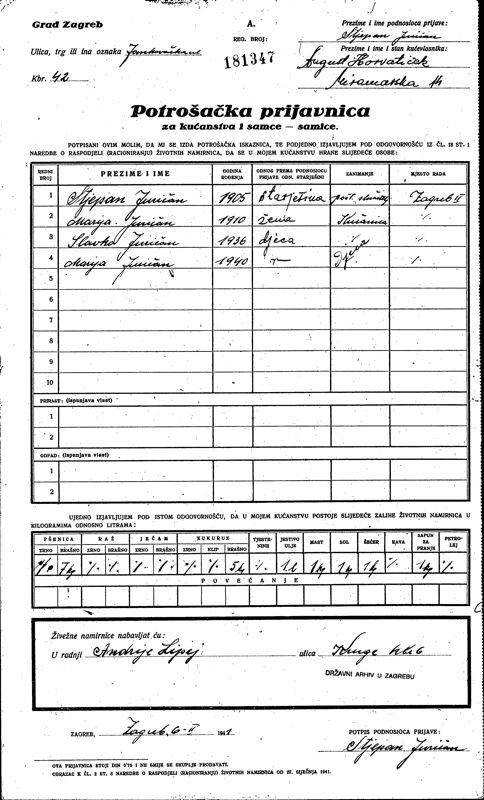 Grad Zagreb
A.
REG. BROJ:
181347
Prezime i ime podnosioca prijave:
Stjepan Juričan
Ulica, trg ili ina oznaka
Prezime i ime i stan kućevlasnika:
August Horvatičak
Kbr. 42
Miramarska 14
Potrošačka prijavnica
za kućanstva i samce — samice.
POTPISANI OVIM MOLIM, DA MI SE IZDA POTROŠAČKA ISKAZNICA, TE PODJEDNO IZJAVLJUJEM POD ODGOVORNOŠĆU IZ ČL. 18 ST. 1
NAREDBE O RASPODJELI (RACIONIRANJU) ŽIVOTNIH NAMIRNICA, DA SE U MOJEM KUĆANSTVU HRANE SLIJEDEĆE OSOBE:
REDNI BROJ PREZIME I IME GODINA ROĐENJA ODNOS PREMA PODNOSIOCU PRIJAVE ODN. STARJEŠINI ZANIMANJE MJESTO RADA
1 Stjepan Juričan 1905 starješina Zagreb II
2 Marija Juričan 1910 žena Kućanica %
3 Slavko Juričan 1936 djeca %
4 Marija Juričan 1940 %
5
6
7
8
9
10
PRIRAST: (ispunjava vlast)
1
2
OTPAD: (ispunjava vlast)
1
2
UJEDNO IZJAVLJUJEM POD ISTOM ODGOVORNOŠĆU, DA U MOJEM KUĆANSTVU POSTOJE SLIJEDEĆE ZALIHE ŽIVOTNIH NAMIRNICA U
KILOGRAMIMA ODNOSNO LITRAMA:
PŠENICA RAŽ JEČAM KUKURUZ TJESTENINE JESTIVO ULJE MAST SOL ŠEĆER KAVA SAPUN ZA PRANJE PETROLEJ
ZRNO BRAŠNO ZRNO BRAŠNO ZRNO BRAŠNO ZRNO KLIP BRAŠNO
% 7 kg % % % % % % 5 kg % 1 l 1 kg 1 kg 1 kg % 1 kg %
POVEĆANJE
Živežne namirnice nabavljat ću:
U radnji Andrije Lipej ulica
DRŽAVNI ARHIV U ZAGREBU
ZAGREB, Zagreb 6-II 1941
POTPIS PODNOSIOCA PRIJAVE:
Stjepan Juričan
OVA PRIJAVNICA STOJI DIN 0'75 I NE SMIJE SE SKUPLJE PRODAVATI.
OBRAZAC K ČL. 2 ST. 3 NAREDBE O RASPODJELI (RACIONIRANJU) ŽIVOTNIH NAMIRNICA OD 27. SIJEČNJA 1941.